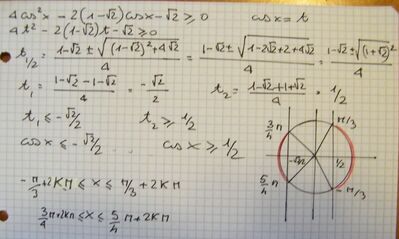 4cos²x - 2(1-√2)cosx - √2 ≥ 0   cosx = t
4t² - 2(1-√2)t - √2 ≥ 0
t1/2 = (1-√2 ± √((1-√2)² + 4√2))/4 = (1-√2 ± √(1-2√2+2+4√2))/4 = (1-√2 ± √(1+√2)²)/4
t₁ = (1-√2-1-√2)/4 = -√2/2   t₂ = (1-√2+1+√2)/4 = 1/2
t₁ ≤ -√2/2   t₂ ≥ 1/2
cosx ≤ -√2/2   cosx ≥ 1/2
-π/3 + 2Kπ ≤ x ≤ π/3 + 2Kπ
3/4π + 2Kπ ≤ x ≤ 5/4π + 2Kπ
3/4 π   π/3
-√2/2   1/2
5/4 π   -π/3